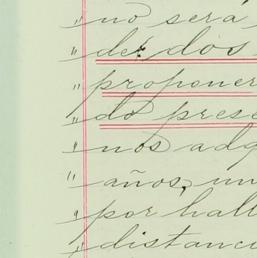 " no será
" de dos
" proponer
" do prese
" nos adq
" años, un
" por hall
" distanci